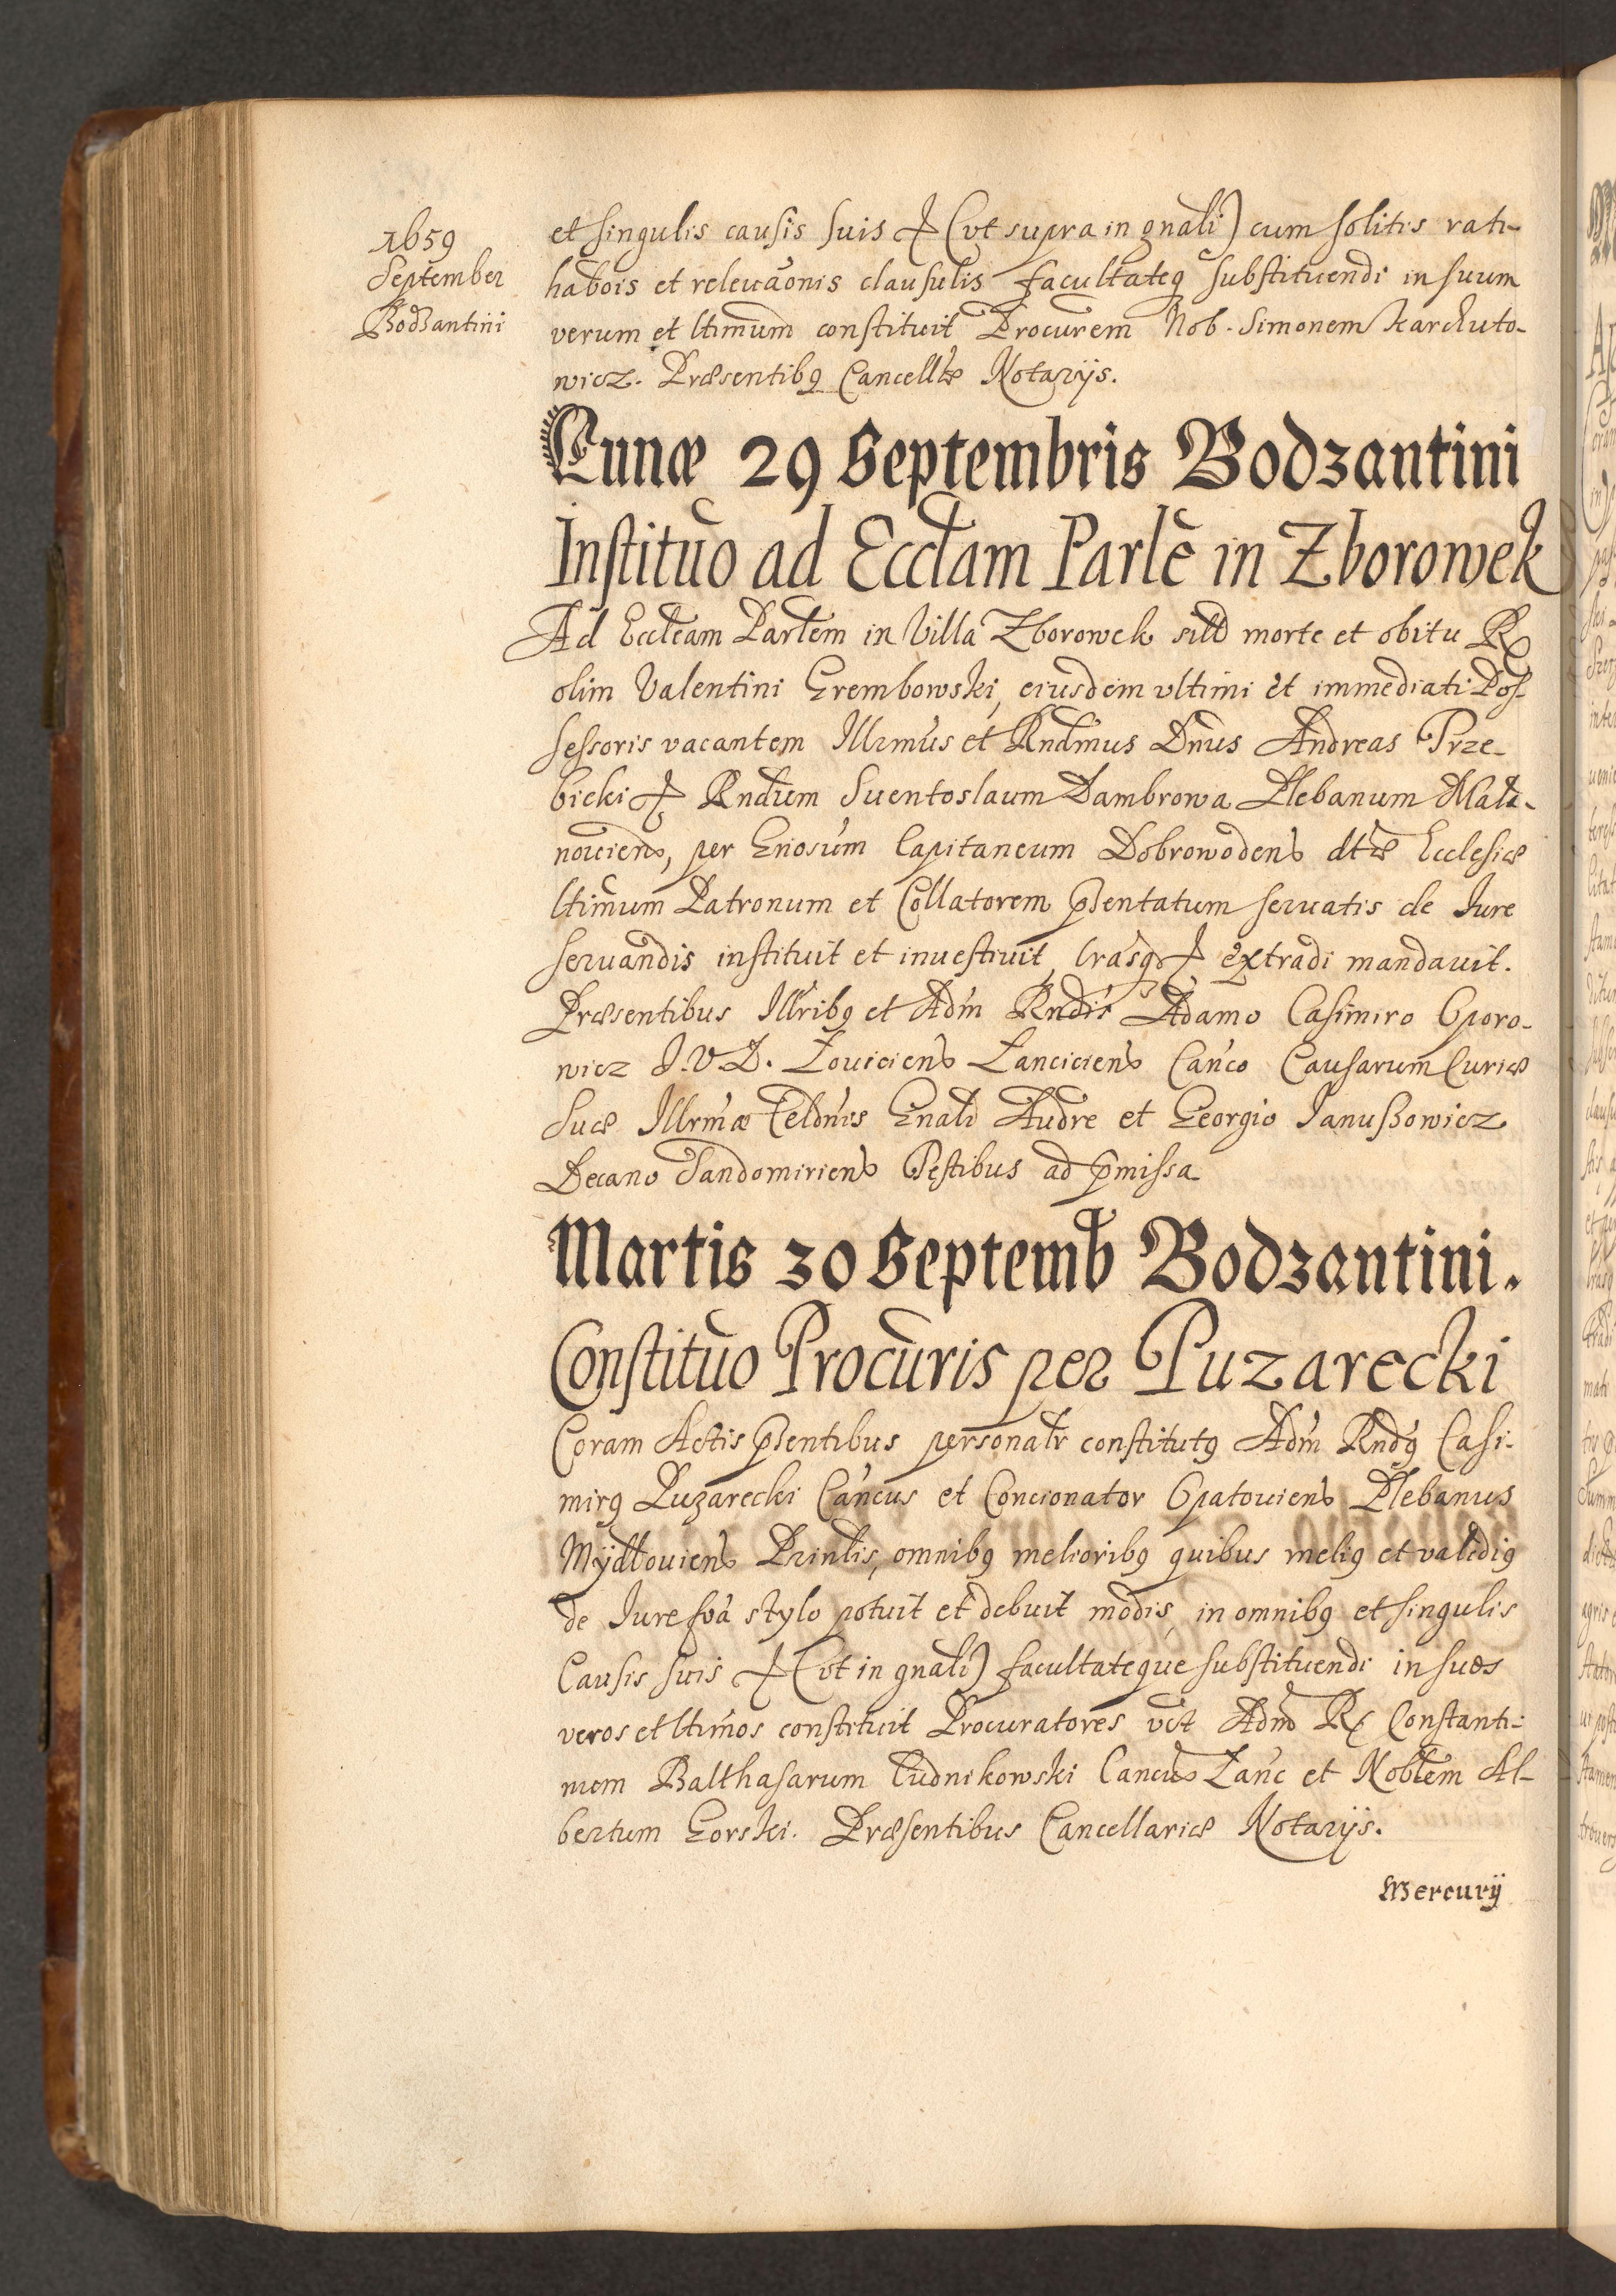 1659
September
Bodzantini
et singulis causis suis & (ut supra in gnali) cum solitis rati-
habois et releuaonis clausulis facultateq substituendi in suum
verum et ltimum constituit Procurem Nob. Simonem Karchuto-
wicz. Præsentibq Cancellæ Notarijs.
Lunæ 29 Septembris Bodzantini
Instituo ad Ecclam Parle in Zborowek
Ad Eccleam Parlem in Villa Zborowek sitt morte et obitu R
olim Valentini Grembowski, eiusdem vltimi et immediati Pos-
sessoris vacantem Illrmus et Rndmus Dnus Andreas Trze-
bicki & Rndum Suentoslaum Dambrowa Plebanum Mali-
nouiens, per Gnosum Capitaneum Dobrowodens dtæ Ecclesiæ
ltimum Patronum et Collatorem psentatum seruatis de Jure
seruandis instituit et inuestiuit, lrasq & extradi mandauit.
Præsentibus Illribq et Adm Rndis Adamo Casimiro Oporo-
wicz J.V.D. Louiciens Lanciciens Canco Causarum Curiæ
Suæ Illrmæ Celdnis Gnali Audre et Georgio Janussowicz
Decano Sandomiriens Testibus ad pmissa
Martis 30 Septemb Bodzantini.
Constituo Procuris per Puzarecki
Coram Actis psentibus personalr constitutq Adm Rndq Casi-
mirq Puzarecki Cancus et Concionator Opatouiens Plebanus
Mydlouiens Prinlis, omnibq melioribq quibus meliq et validiq
de Jure foa stylo potuit et debuit modis, in omnibq et singulis
Causis suis & (ut in gnali) facultateque substituendi in suos
veros et ltimos constituit Procuratores vct Adm R Constanti-
nem Balthasarum Cudnikowski Cancus Lanc et Noblem Al-
bertum Gorski. Præsentibus Cancellariæ Notarijs.
Mercurij